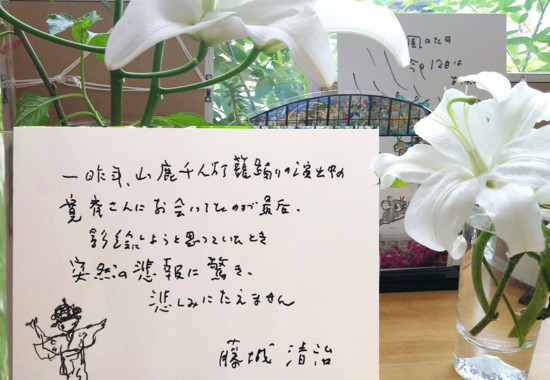 一昨年、山鹿千人灯籠踊りの演出中の
寛斉さんにお会いしたのが最后。
影絵にしようと思っていたとき
突然の悲報に驚き、
悲しみにたえません
藤城 清治